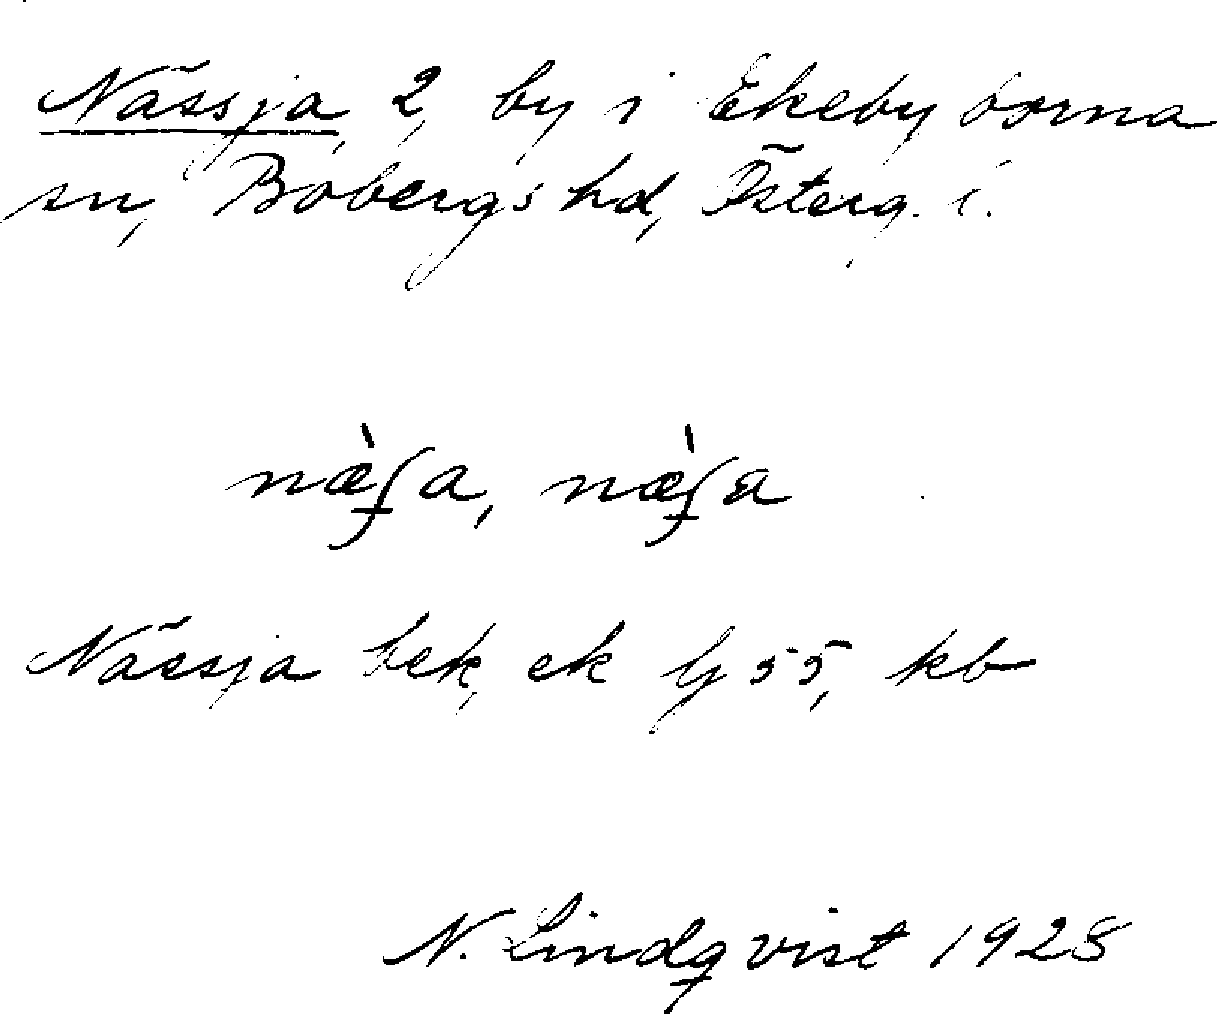 Nässja, 2, by i Ekeby borna
sn, Bobergs hd, Österg. l.
næ̀ʄa, næ̀ʄa
Nässja bek, ek bl 55, kb
N. Lindqvist 1928